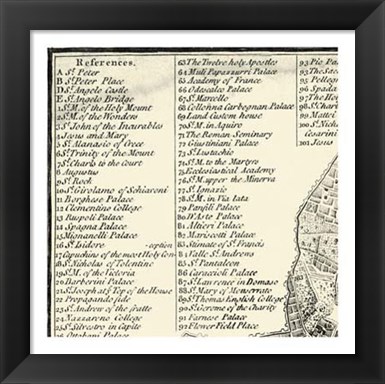 References.
A St. Peter
B St. Peter Place
D St. Angelo Castle
E St. Angelo Bridge
1 St. M. of the Holy Mount
2 St. M. of the Wonders
3 St. John of the Incurables
4 Jesus and Mary
5 St. Atanasio of Grece
6 St. Trinity of the Mount
7 St. Charls to the Court
8 Augustus
9 St. Rock
10 St. Girolamo of Schiavoni
11 Borghese Palace
12 Clementino College
13 Ruspoli Palace
14 Spagna Palace
15 Mignanelli Palace
16 St. Isidore -ception
17 Capuchins of the most Holy Con
18 St. Nicholas of Tolentino
19 St. M. of the Victoria
20 Barberini Palace
21 St. Joseph at ye Top of the House
22 Propaganda fide
23 St. Andrew of the fratte
24 Nazzareno College
25 St. Silvestro in Capite
26 Ottoboni Palace
63 The Twelve holy Apostles
64 Muti Papazzurri Palace
65 Academy of France
66 Odascalco Palace
67 St. Marcello
68 Collonna Carbognan Palace
69 Land Custom house
70 St. M. in Aquiro
71 The Roman Seminary
72 Giustiniani Palace
73 St. Eustachio
74 St. M. to the Martyrs
75 Ecclesiastical Academy
76 St. M. upper the Minerva
77 St. Ignazio
78 St. M. in Via Lata
79 Panfili Palace
80 D'Aste Palace
81 Altieri Palace
82 Mariscotti Palace
83 Stimate of St. Francis
84 Valle St. Andrews
85 St. Pantaleon
86 Caraccioli Palace
87 St. Lawrence in Damaso
88 St. Mary of Monserrate
89 St. Thomas English College
90 St. Gerome of the Charity
91 Farnese Palace
92 Flower Field Place
93 Pio Pa
94 The Sac
95 Pelleg
96 Spada
97 The T
98 St. Ch
99 Mattei
100 St. Nich
Cesarini
101 Jesus